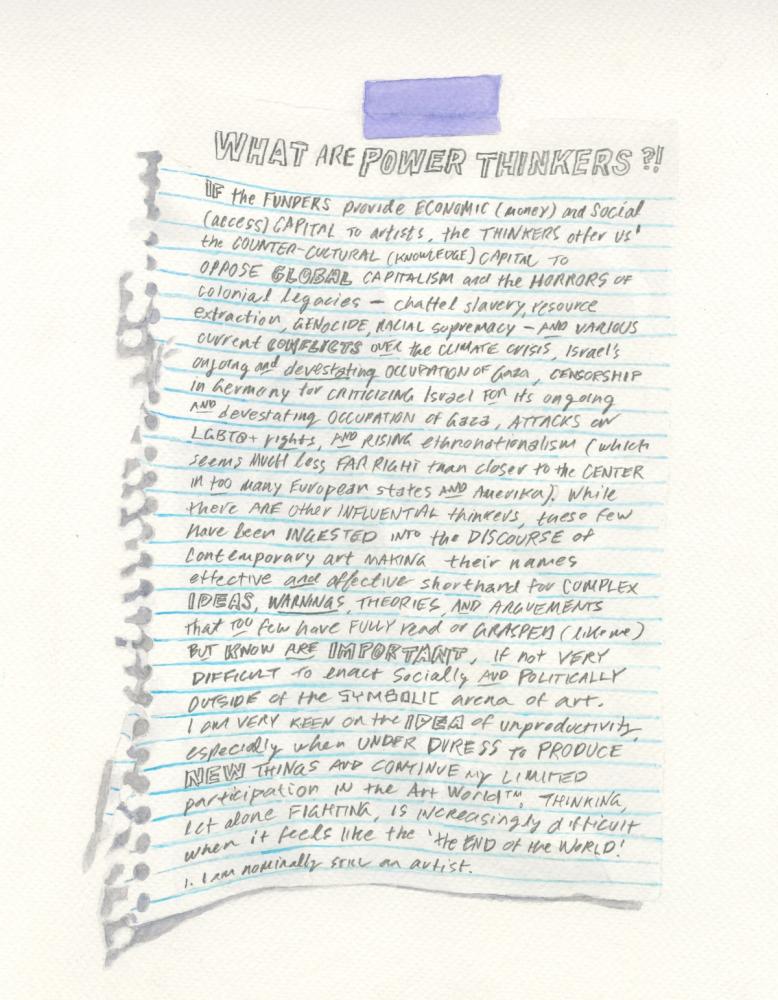 WHAT ARE POWER THINKERS?!
IF the FUNDERS provide ECONOMIC (money) and Social
(access) CAPITAL TO artists, the THINKERS offer us¹
the COUNTER-CULTURAL (KNOWLEDGE) CAPITAL TO
OPPOSE GLOBAL CAPITALISM and the HORRORS OF
colonial legacies — chattel slavery, resource
extraction, GENOCIDE, RACIAL supremacy — AND VARIOUS
current CONFLICTS OVER the CLIMATE CRISIS, Israel's
ongoing and devestating OCCUPATION of Gaza, CENSORSHIP
in Germany for CRITICIZING Israel FOR its ongoing
AND devestating OCCUPATION of Gaza, ATTACKS on
LGBTQ+ rights, AND RISING ethnonationalism (which
seems MUCH less FAR RIGHT than closer to the CENTER
in too many European states AND Amerika). While
there ARE other INFLUENTIAL thinkers, these few
have been INGESTED INTO the DISCOURSE of
contemporary art MAKING their names
effective and affective shorthand for COMPLEX
IDEAS, WARNINGS, THEORIES, AND ARGUEMENTS
that TOO few have FULLY read or GRASPED (like me)
BUT KNOW ARE IMPORTANT, if not VERY
DIFFICULT to enact Socially AND POLITICALLY
OUTSIDE of the SYMBOLIC arena of art.
I am VERY KEEN on the IDEA of unproductivity,
especially when UNDER DURESS to PRODUCE
NEW THINGS AND CONTINUE my LIMITED
participation IN the Art World™. THINKING,
let alone FIGHTING, IS INCREASINGLY difficult
when it feels like the 'the END of the WORLD!'
1. I am nominally still an artist.